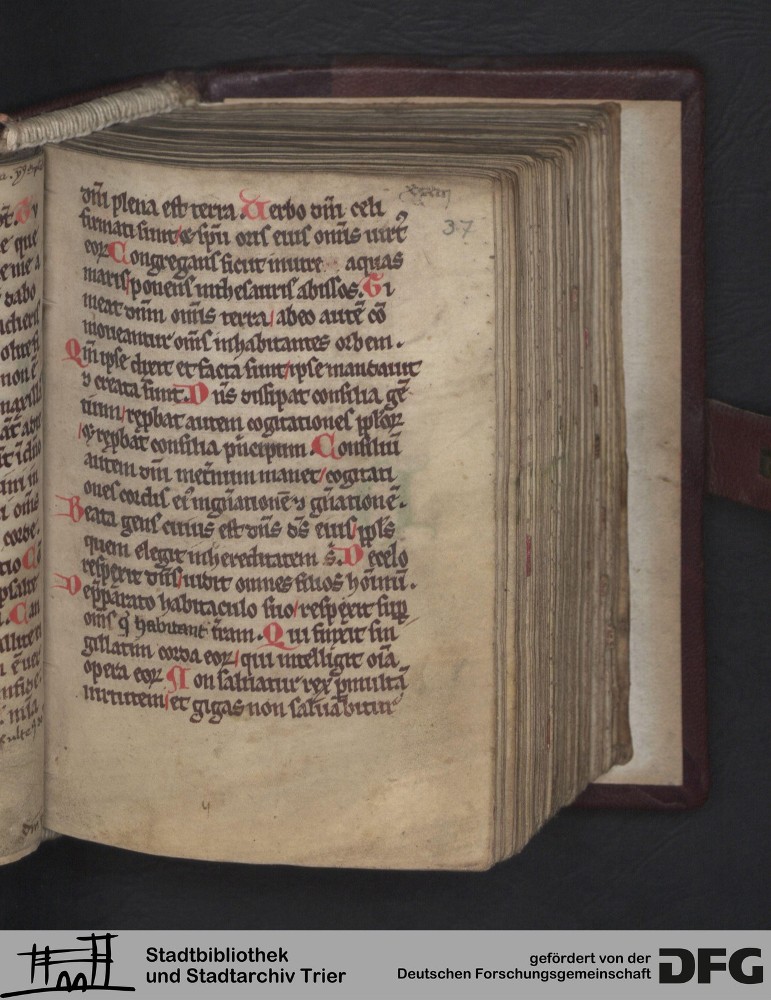 dñi plena est terra Verbo dñi celi
firmati sunt / & spū oris eius omīs uirt᾽
eorꝝ Congregans sicut in utre aquas
maris / ponens in thesauris abissos. Ti
meat dñm omīs terra / ab eo autē cō
moueantur om̄s inhabitantes orbem.
Qm̄ ipse dixit et facta sunt / ipse mandauit
⁊ creata sunt. Dn̄s dissipat consilia gē
tium / rep̄bat autem cogitationes ppl̄orꝝ
/ & rep̄bat consilia pͥncipum. Consiliū
autem dn̄i in et̄num manet / cogitati
ones cordis eiꝰ in gn̄ationē ⁊ gn̄ationē.
Beata gens cuius est dn̄s ds̄ eius / ppl̄s
quem elegit in hereditatem s̄. De celo
respexit dn̄s / uidit omnes filios hōīnū.
De p̄parato habitaculo suo / respexit sup̄
om̄s qͥ habitant t̄ram. Qui finxit sin
gillatim corda eorꝝ / qui intelligit oīa
opera eorꝝ Non saluatur rex p̄ multā
uirtutem / et gigas non saluabitur
xxxiij
37
Stadtbibliothek
und Stadtarchiv Trier
gefördert von der
Deutschen Forschungsgemeinschaft
DFG